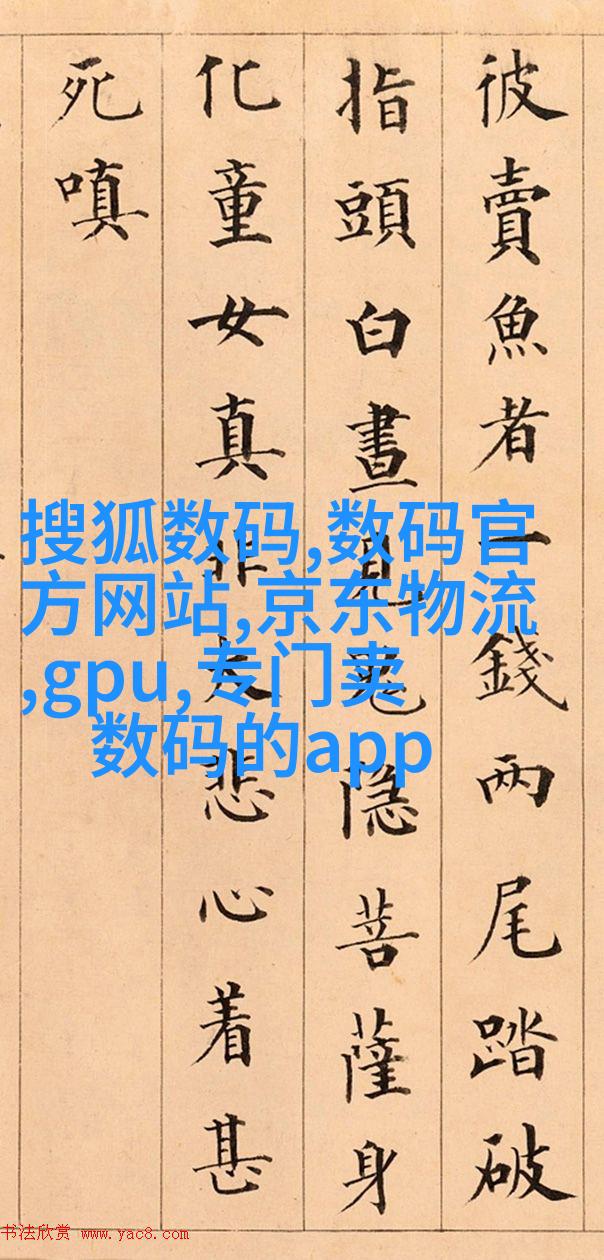 彼賣魚者一錢两尾踏破
指頭白晝見鬼隐菩薩身
化童女真非大悲心着甚
死嗔
搜狐数码,数码官
方网站,京东物流
,gpu,专门卖
数码的app
书法欣赏 www.yac8.com